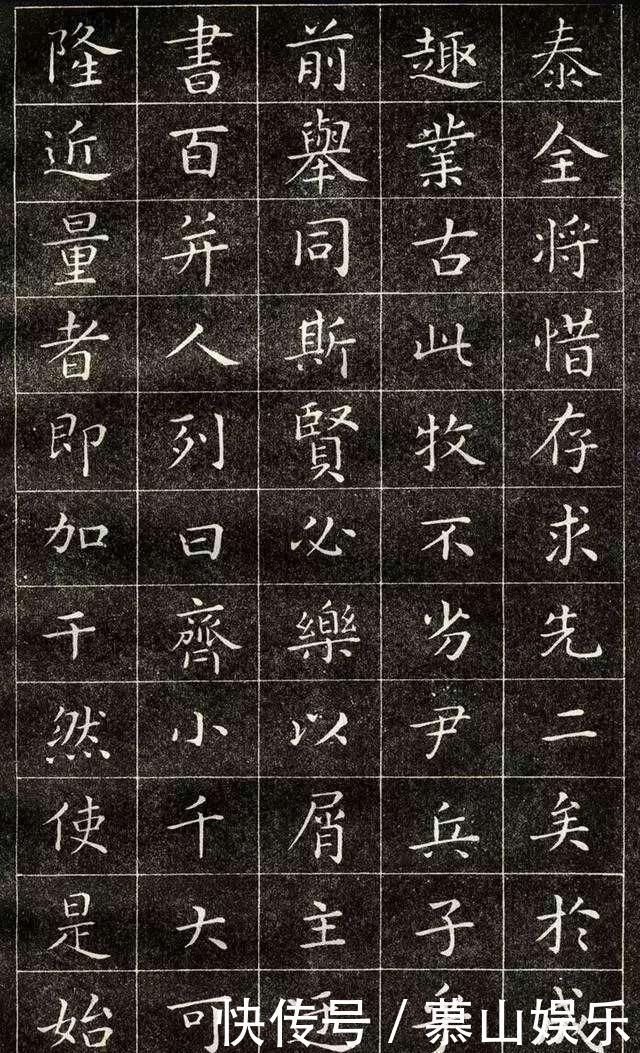 泰全将惜存求先二矣於
趣業古此牧不劣尹兵子
前舉同斯賢必樂以屑主
書百并人列曰齊小千大可
隆近量者即加干然使是始
快传号 / 慕山娱乐